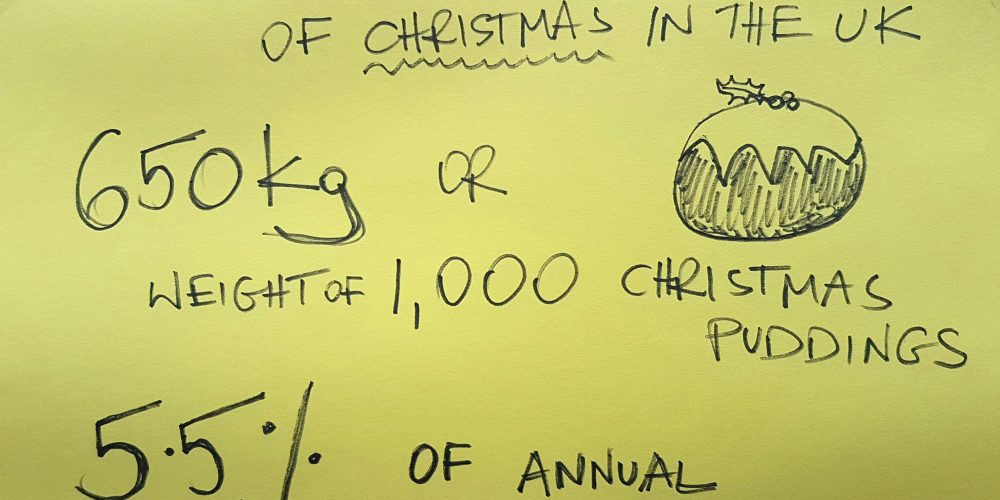 OF CHRISTMAS IN THE UK
650kg OR
WEIGHT OF 1,000 CHRISTMAS
PUDDINGS
5.5% OF ANNUAL